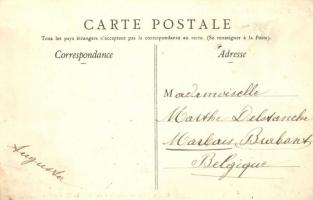 CARTE POSTALE
Tous les pays étrangers n'acceptent pas la correspondance au recto. (Se renseigner à la Poste).
Correspondance
Adresse
Mademoiselle
Marthe Delstanche
Marbais, Brabant
Belgique
Augusta